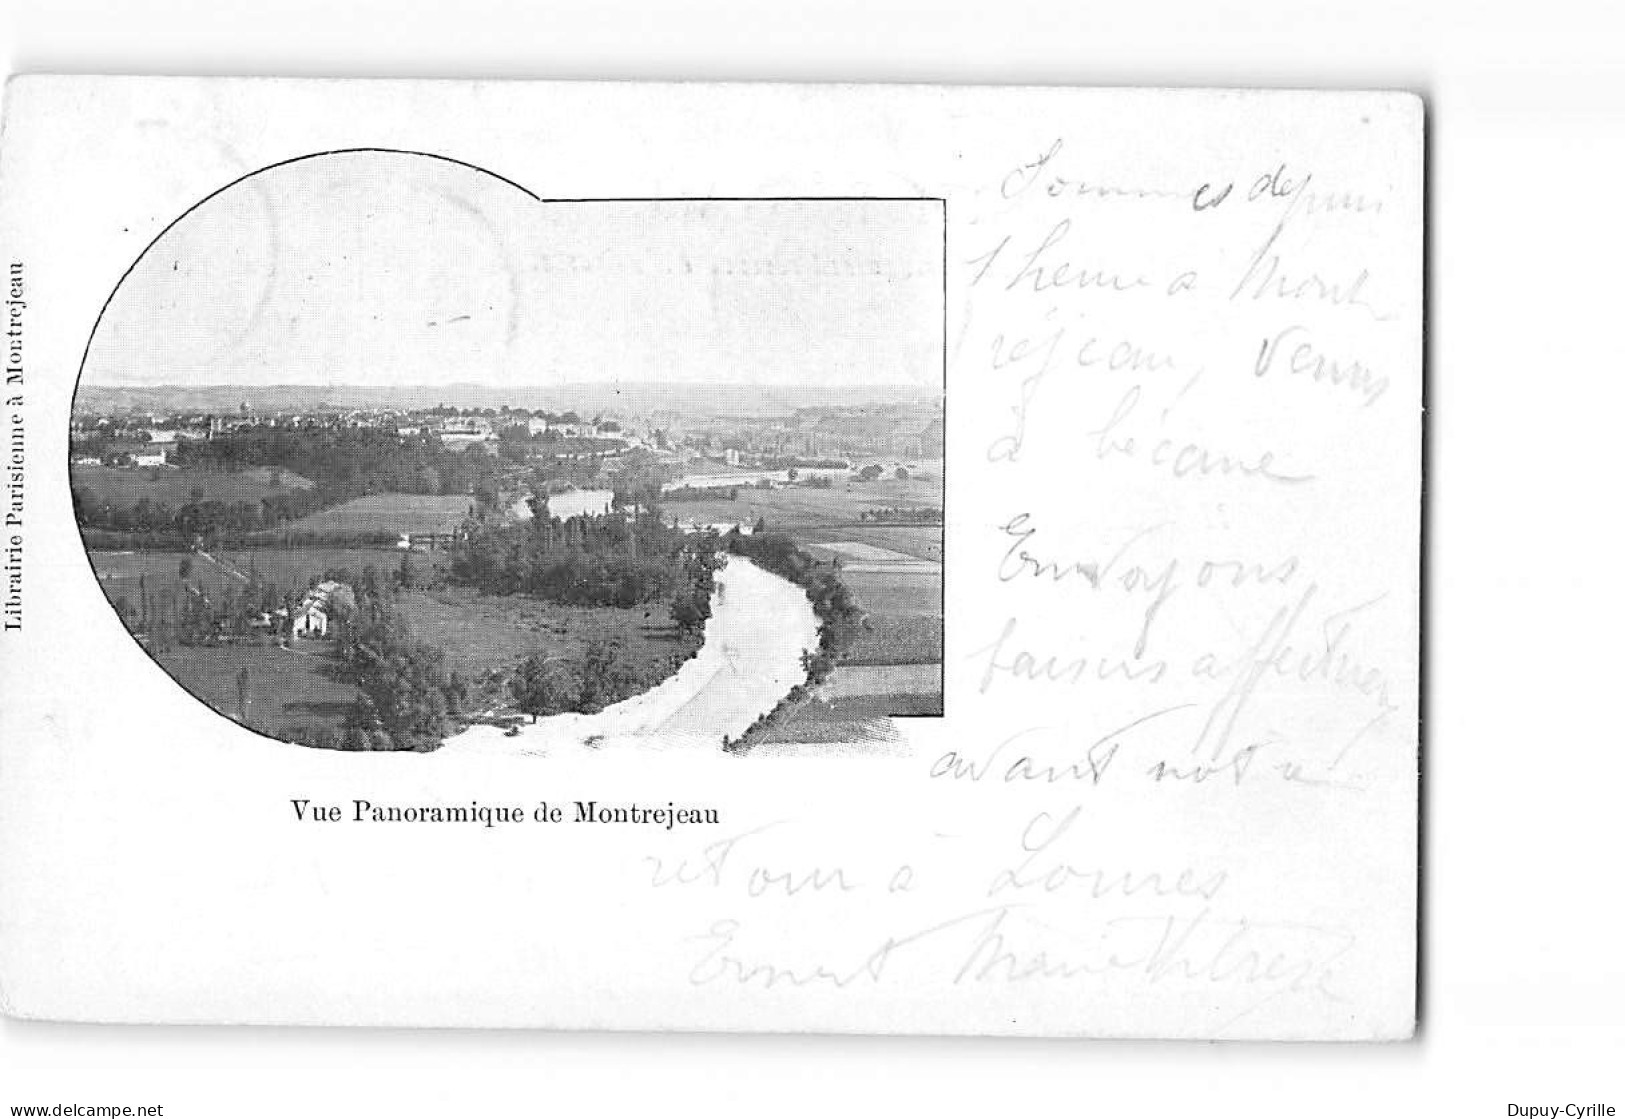 Librairie Parisienne à Montrejeau
Vue Panoramique de Montrejeau
Sommes depuis
1 heure a Mont
réjeau, venus
à bécane
Envoyons
baisers affectueux
avant not
retour à Loures
Ernest Marie
www.delcampe.net
Dupuy-Cyrille